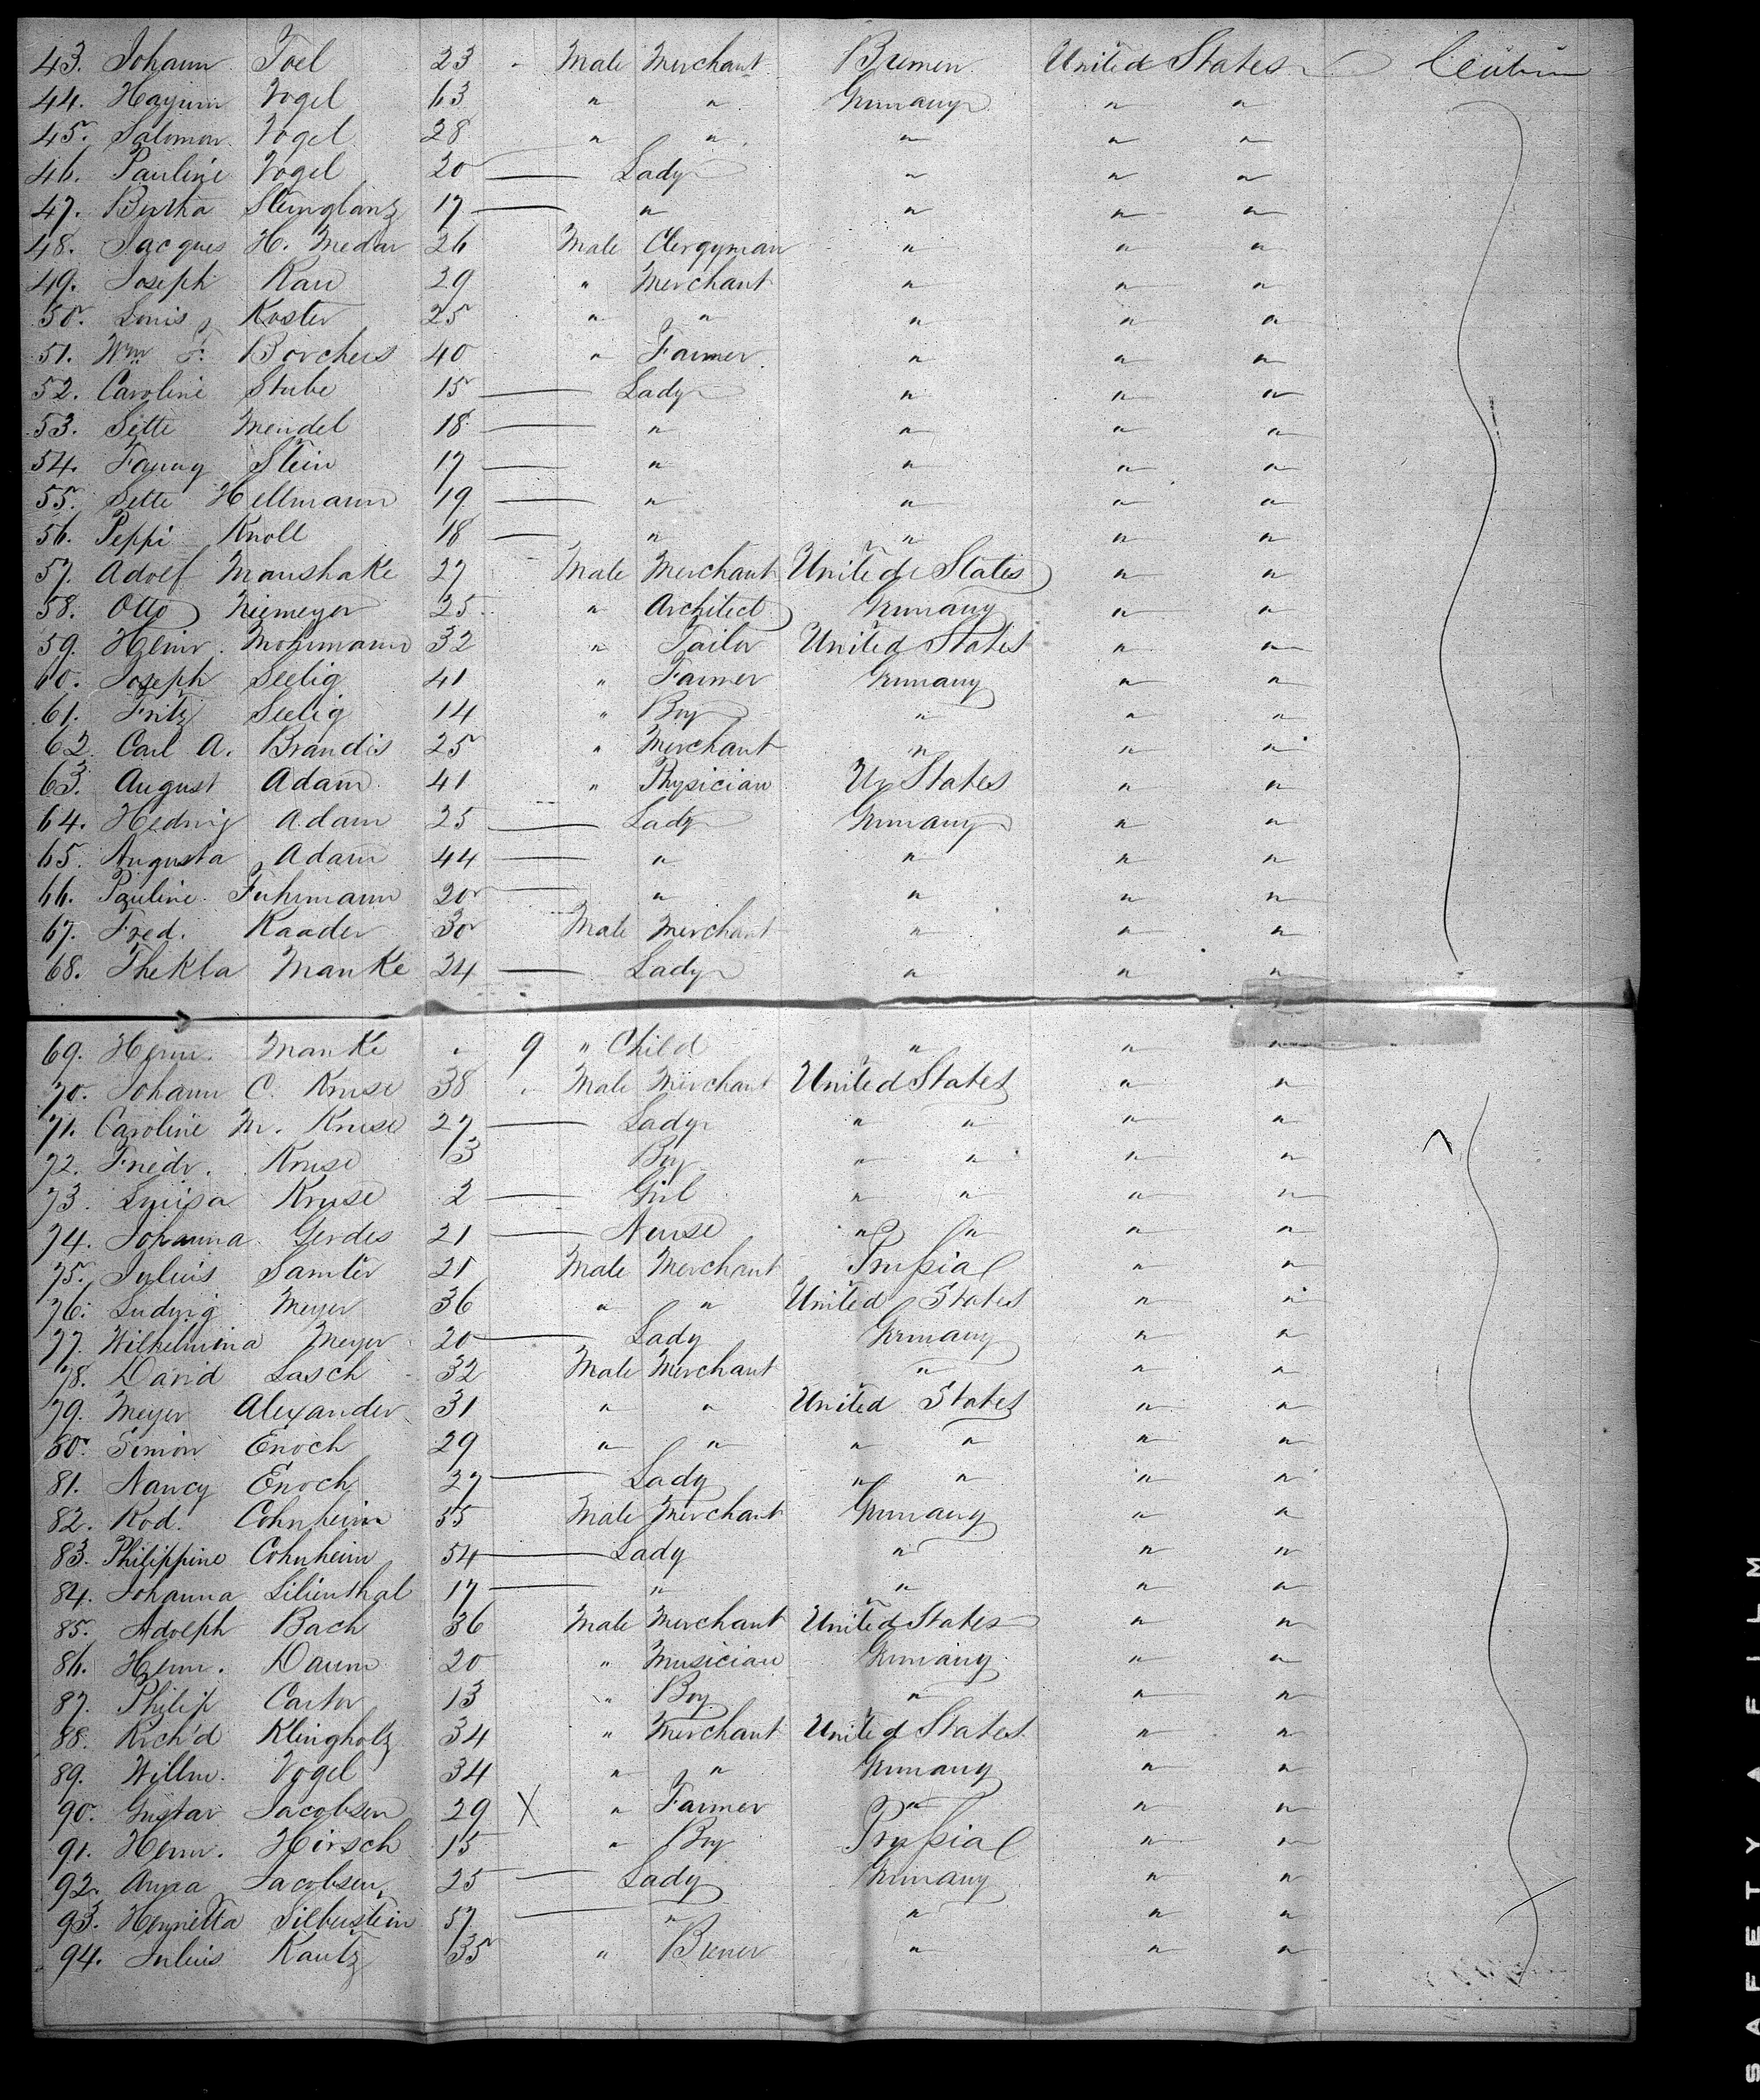 43. Johann Toel 23 - Male Merchant Bremen United States Cabin
44. Hayum Vogel 63 " " Germany " "
45. Salomon Vogel 28 " " " " "
46. Pauline Vogel 20 — Lady " " "
47. Bertha Sternglanz 17 — " " " "
48. Jacques H. Medar 26 Male Clergyman " " "
49. Joseph Rau 29 " Merchant " " "
50. Louis Koster 25 " " " " "
51. Wm F. Borchers 40 " Farmer " " "
52. Caroline Stube 15 — Lady " " "
53. Sette Mendel 18 — " " " "
54. Fanny Stein 17 — " " " "
55. Sette Hellmann 19 — " " " "
56. Peppi Knoll 18 — " " " "
57. Adolf Manshake 27 Male Merchant United States " "
58. Otto Niemeyer 25 " Architect Germany " "
59. Heinr. Mohrmann 32 " Tailor United States " "
60. Joseph Seelig 41 " Farmer Germany " "
61. Fritz Seelig 14 " Boy " " "
62. Carl A. Brandis 25 " Merchant " " "
63. August Adam 41 " Physician Un States " "
64. Hedwig Adam 25 — Lady Germany " "
65. Augusta Adam 44 — " " " "
66. Pauline Fuhrmann 20 — " " " "
67. Fred. Kaader 30 Male Merchant " " "
68. Thekla Manke 24 — Lady " " "
69. Herm. Manke " 9 " Child " " "
70. Johann C. Kruse 38 - Male Merchant United States " "
71. Caroline M. Kruse 27 — Lady " " " "
72. Friedr. Kruse 3 Boy " " " "
73. Louisa Kruse 2 — Girl " " " "
74. Johanna Gerdes 21 — Nurse " " " "
75. Julius Samter 21 Male Merchant Prussia " "
76. Ludwig Meyer 36 " " United States " "
77. Wilhelmina Meyer 20 — Lady Germany " "
78. David Lasch 32 Male Merchant " " "
79. Meyer Alexander 31 " " United States " "
80. Simon Enoch 29 " " " " " "
81. Nancy Enoch 27 — Lady " " " "
82. Rod. Cohnheim 55 Male Merchant Germany " "
83. Philippine Cohnheim 54 — Lady " " "
84. Johanna Lilienthal 17 — " " " "
85. Adolph Bach 36 Male Merchant United States " "
86. Herm. Daum 20 " Musician Germany " "
87. Philip Carter 13 " Boy " " "
88. Rich'd Klingholz 34 " Merchant United States " "
89. Willm. Vogel 34 " " Germany " "
90. Gustav Jacobsen 29 X " Farmer " " "
91. Herm. Hirsch 15 " Boy Prussia " "
92. Anna Jacobsen 25 — Lady Germany " "
93. Henrietta Silberstein 57 — " " " "
94. Julius Kautz 35 " Brewer " " "
SAFETY FILM